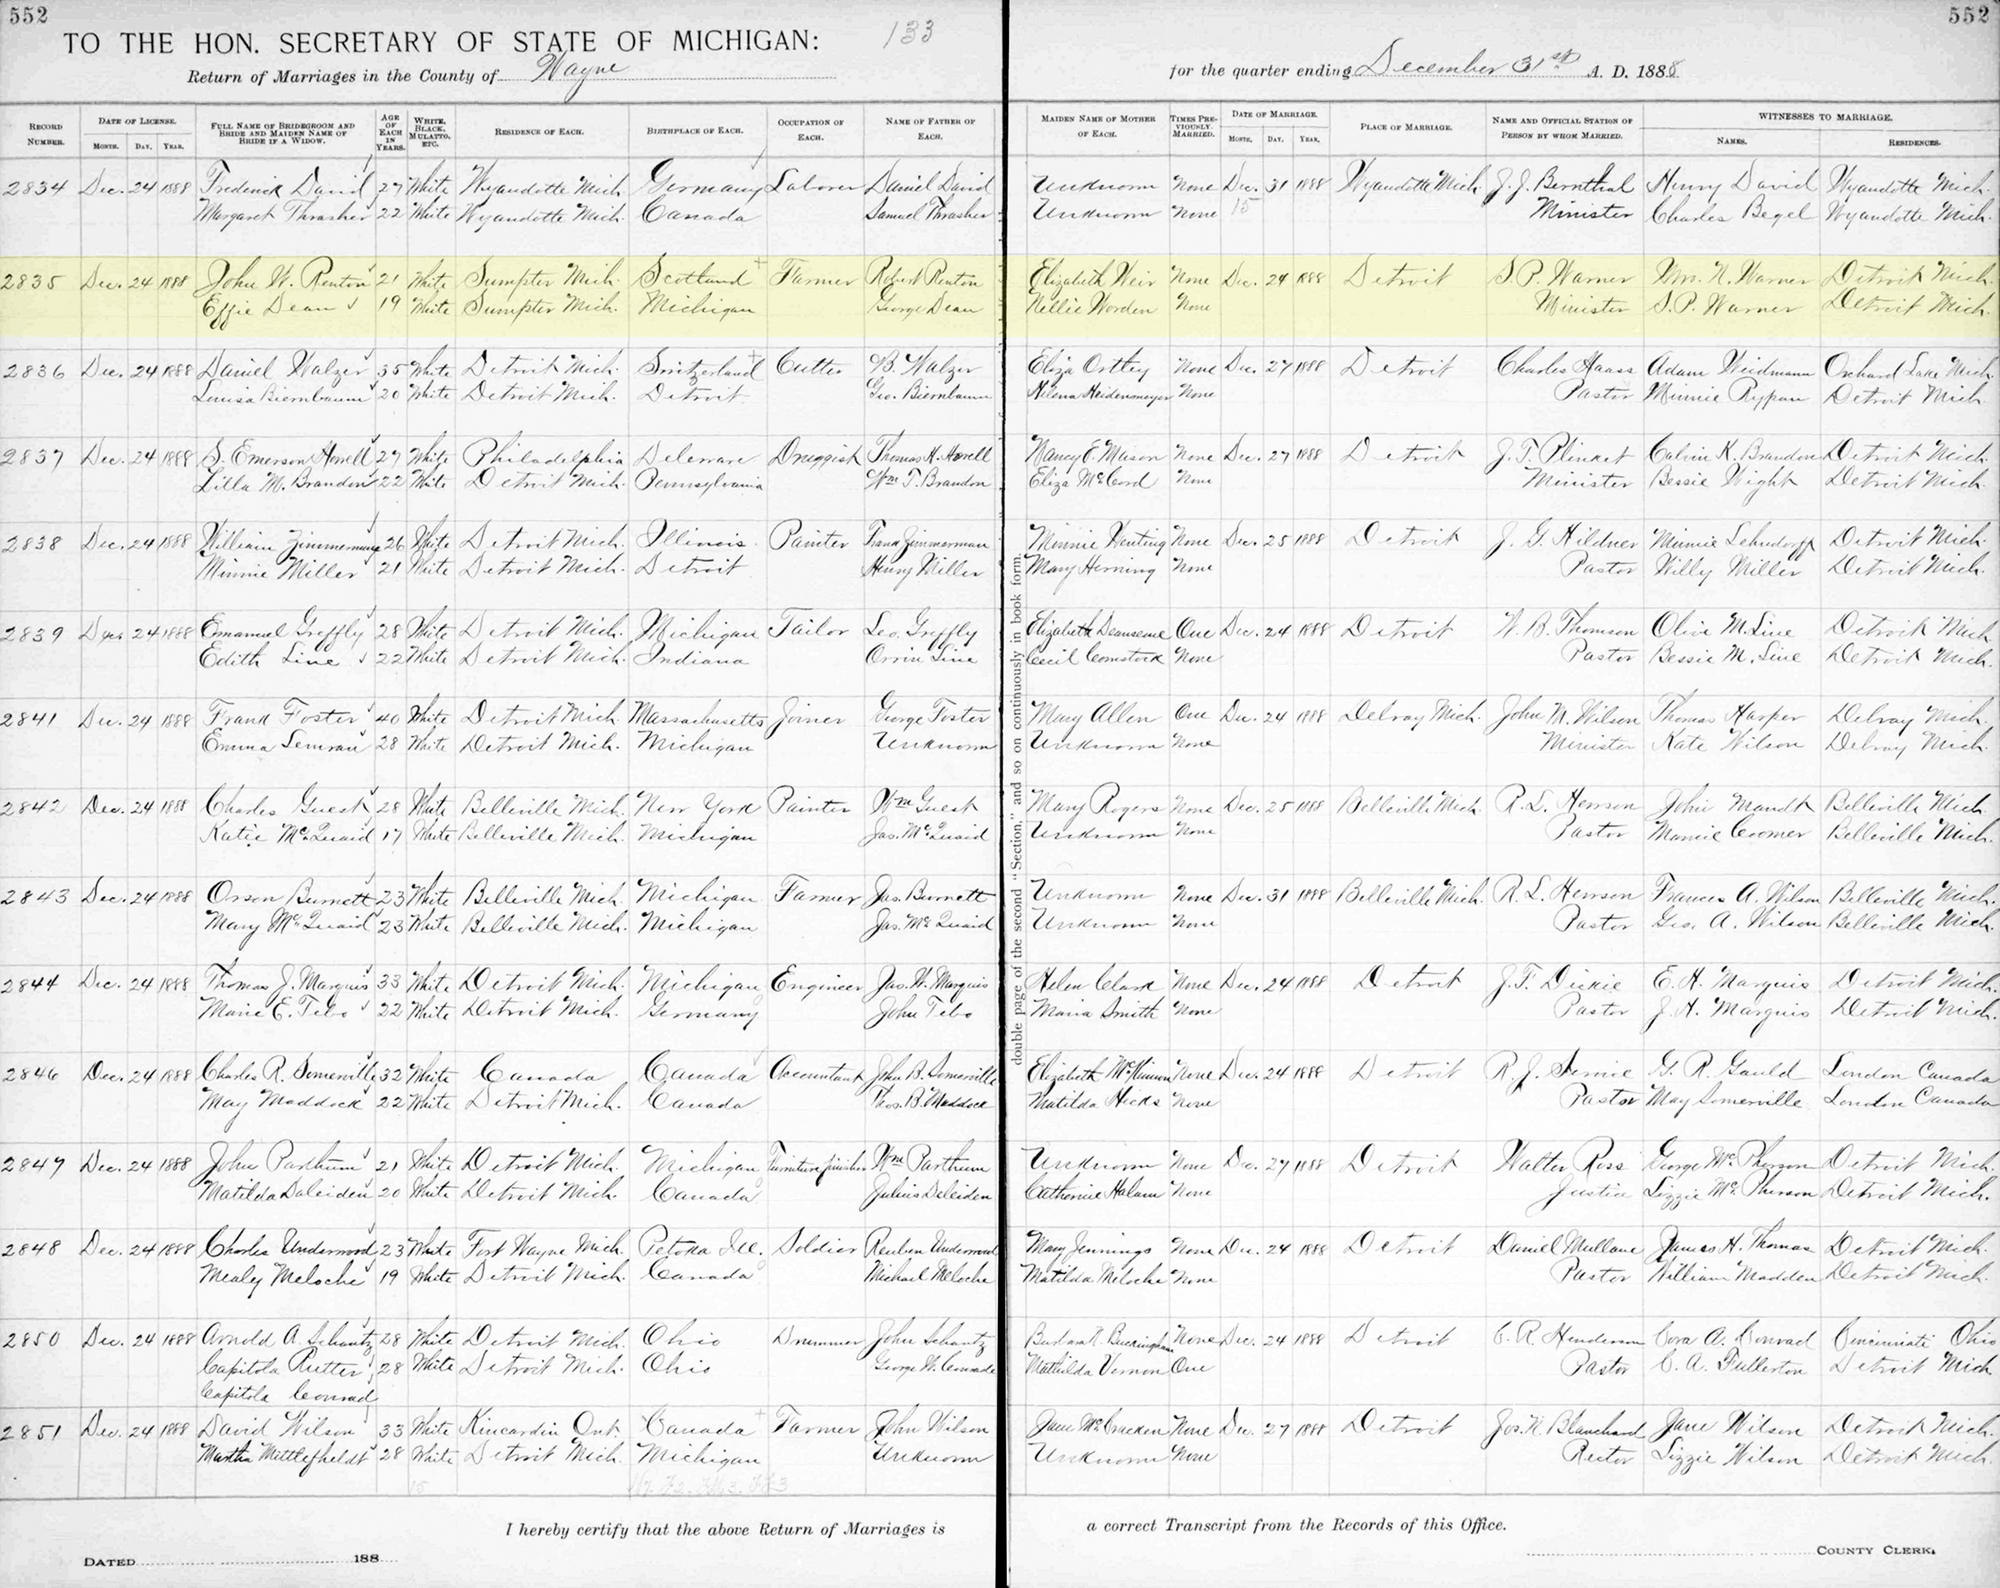 552
552
TO THE HON. SECRETARY OF STATE OF MICHIGAN:
133
Return of Marriages in the County of Wayne
for the quarter ending December 31st A. D. 1888
RECORD NUMBER.
DATE OF LICENSE.
MONTH. DAY. YEAR.
FULL NAME OF BRIDEGROOM AND BRIDE AND MAIDEN NAME OF BRIDE IF A WIDOW.
AGE OF EACH IN YEARS.
WHITE, BLACK, MULATTO, ETC.
RESIDENCE OF EACH.
BIRTHPLACE OF EACH.
OCCUPATION OF EACH.
NAME OF FATHER OF EACH.
MAIDEN NAME OF MOTHER OF EACH.
TIMES PREVIOUSLY MARRIED.
DATE OF MARRIAGE.
MONTH. DAY. YEAR.
PLACE OF MARRIAGE.
NAME AND OFFICIAL STATION OF PERSON BY WHOM MARRIED.
WITNESSES TO MARRIAGE.
NAMES. RESIDENCES.
2834 Dec. 24 1888 Frederick David 27 White Wyandotte Mich. Germany Laborer Daniel David Unknown None Dec. 31 1888 Wyandotte Mich. J. J. Bernthal Henry David Wyandotte Mich.
Margaret Thrasher 22 White Wyandotte Mich. Canada Samuel Thrasher Unknown None 15 Minister Charles Begel Wyandotte Mich.
2835 Dec. 24 1888 John W. Renton 21 White Sumpter Mich. Scotland Farmer Robert Renton Elizabeth Weir None Dec. 24 1888 Detroit S. P. Warner Mrs. N. Warner Detroit Mich.
Effie Dean 19 White Sumpter Mich. Michigan George Dean Nellie Worden None Minister S. P. Warner Detroit Mich.
2836 Dec. 24 1888 Daniel Walzer 35 White Detroit Mich. Switzerland Cutter B. Walzer Eliza Ortley None Dec. 27 1888 Detroit Charles Haass Adam Weidmann Orchard Lake Mich.
Louisa Biernbaum 20 White Detroit Mich. Detroit Geo. Biernbaum Helena Heidenmeyer None Pastor Minnie Detroit Mich.
2837 Dec. 24 1888 S. Emerson Howell 27 White Philadelphia Delaware Druggist Thomas H. Howell Nancy E. Mason None Dec. 27 1888 Detroit J. T. Calvin K. Brandon Detroit Mich.
Lilla M. Brandon 22 White Detroit Mich. Pennsylvania Wm T. Brandon Eliza McCord None Minister Bessie Wight Detroit Mich.
2838 Dec. 24 1888 William Zimmerman 26 White Detroit Mich. Illinois Painter Frank Zimmerman Minnie Wenting None Dec. 25 1888 Detroit J. G. Hildner Minnie Lehndorff Detroit Mich.
Minnie Miller 21 White Detroit Mich. Detroit Henry Miller Mary Herning None Pastor Willy Miller Detroit Mich.
2839 24 1888 Emanuel Greffly 28 White Detroit Mich. Michigan Tailor Leo. Greffly Elizabeth One Dec. 24 1888 Detroit W. B. Thomson Olive M. Line Detroit Mich.
Edith Line 22 White Detroit Mich. Indiana Orrin Line Cecil Comstock None Pastor Bessie M. Line Detroit Mich.
2841 Dec. 24 1888 Frank Foster 40 White Detroit Mich. Massachusetts Joiner George Foster Mary Allen One Dec. 24 1888 Delray Mich. John M. Wilson Thomas Harper Delray Mich.
Emma 28 White Detroit Mich. Michigan Unknown Unknown None Minister Kate Wilson Delray Mich.
2842 Dec. 24 1888 Charles Guest 28 White Belleville Mich. New York Painter Wm Guest Mary Rogers None Dec. 25 1888 Belleville Mich. R. L. Hewson John Mandt Belleville Mich.
Katie McQuaid 17 White Belleville Mich. Michigan Jas. McQuaid Unknown None Pastor Mamie Coomer Belleville Mich.
2843 Dec. 24 1888 Orson Burnett 23 White Belleville Mich. Michigan Farmer Jas. Burnett Unknown None Dec. 31 1888 Belleville Mich. R. L. Hewson Frances A. Wilson Belleville Mich.
Mary McQuaid 23 White Belleville Mich. Michigan Jas. McQuaid Unknown None Pastor Geo. A. Wilson Belleville Mich.
2844 Dec. 24 1888 Thomas J. Marquis 33 White Detroit Mich. Michigan Engineer Jas. W. Marquis Helen Clark None Dec. 24 1888 Detroit J. F. Dickie E. H. Marquis Detroit Mich.
Marie E. Tebo 22 White Detroit Mich. Germany John Tebo Maria Smith None Pastor J. H. Marquis Detroit Mich.
2846 Dec. 24 1888 Charles R. Somerville 32 White Canada Canada Accountant John B. Somerville Elizabeth McKinnon None Dec. 24 1888 Detroit R. J. Service G. R. Gauld London Canada
May Maddock 22 White Detroit Mich. Canada Thos. B. Maddock Matilda Hicks None Pastor May Somerville London Canada
2847 Dec. 24 1888 John Parthum 21 White Detroit Mich. Michigan Furniture finisher Wm Parthum Unknown None Dec. 27 1888 Detroit Walter Ross George McPherson Detroit Mich.
Matilda Daleiden 20 White Detroit Mich. Canada Julius Deleiden Catherine Halam None Justice Lizzie McPherson Detroit Mich.
2848 Dec. 24 1888 Charles Underwood 23 White Fort Wayne Mich. Petoka Ill. Soldier Reuben Underwood Mary Jennings None Dec. 24 1888 Detroit Daniel Mullane James H. Thomas Detroit Mich.
Mealy Meloche 19 White Detroit Mich. Canada Michael Meloche Matilda Meloche None Pastor William Madden Detroit Mich.
2850 Dec. 24 1888 Arnold A. Schantz 28 White Detroit Mich. Ohio Drummer John Schantz Buckingham None Dec. 24 1888 Detroit C. R. Henderson Cora A. Conrad Cincinnati Ohio
Capitola Rutter 28 White Detroit Mich. Ohio George W. Conrade Mathilda Vernon One Pastor C. A. Fullerton Detroit Mich.
Capitola Conrad
2851 Dec. 24 1888 David Wilson 33 White Kincardin Ont. Canada Farmer John Wilson Jane McCracken None Dec. 27 1888 Detroit Jos. H. Blanchard Jane Wilson Detroit Mich.
Martha Mittlefheldt 28 White Detroit Mich. Michigan Unknown Unknown None Rector Lizzie Wilson Detroit Mich.
double page of the second "Section," and so on continuously in book form.
I hereby certify that the above Return of Marriages is a correct Transcript from the Records of this Office.
DATED 188
COUNTY CLERK.